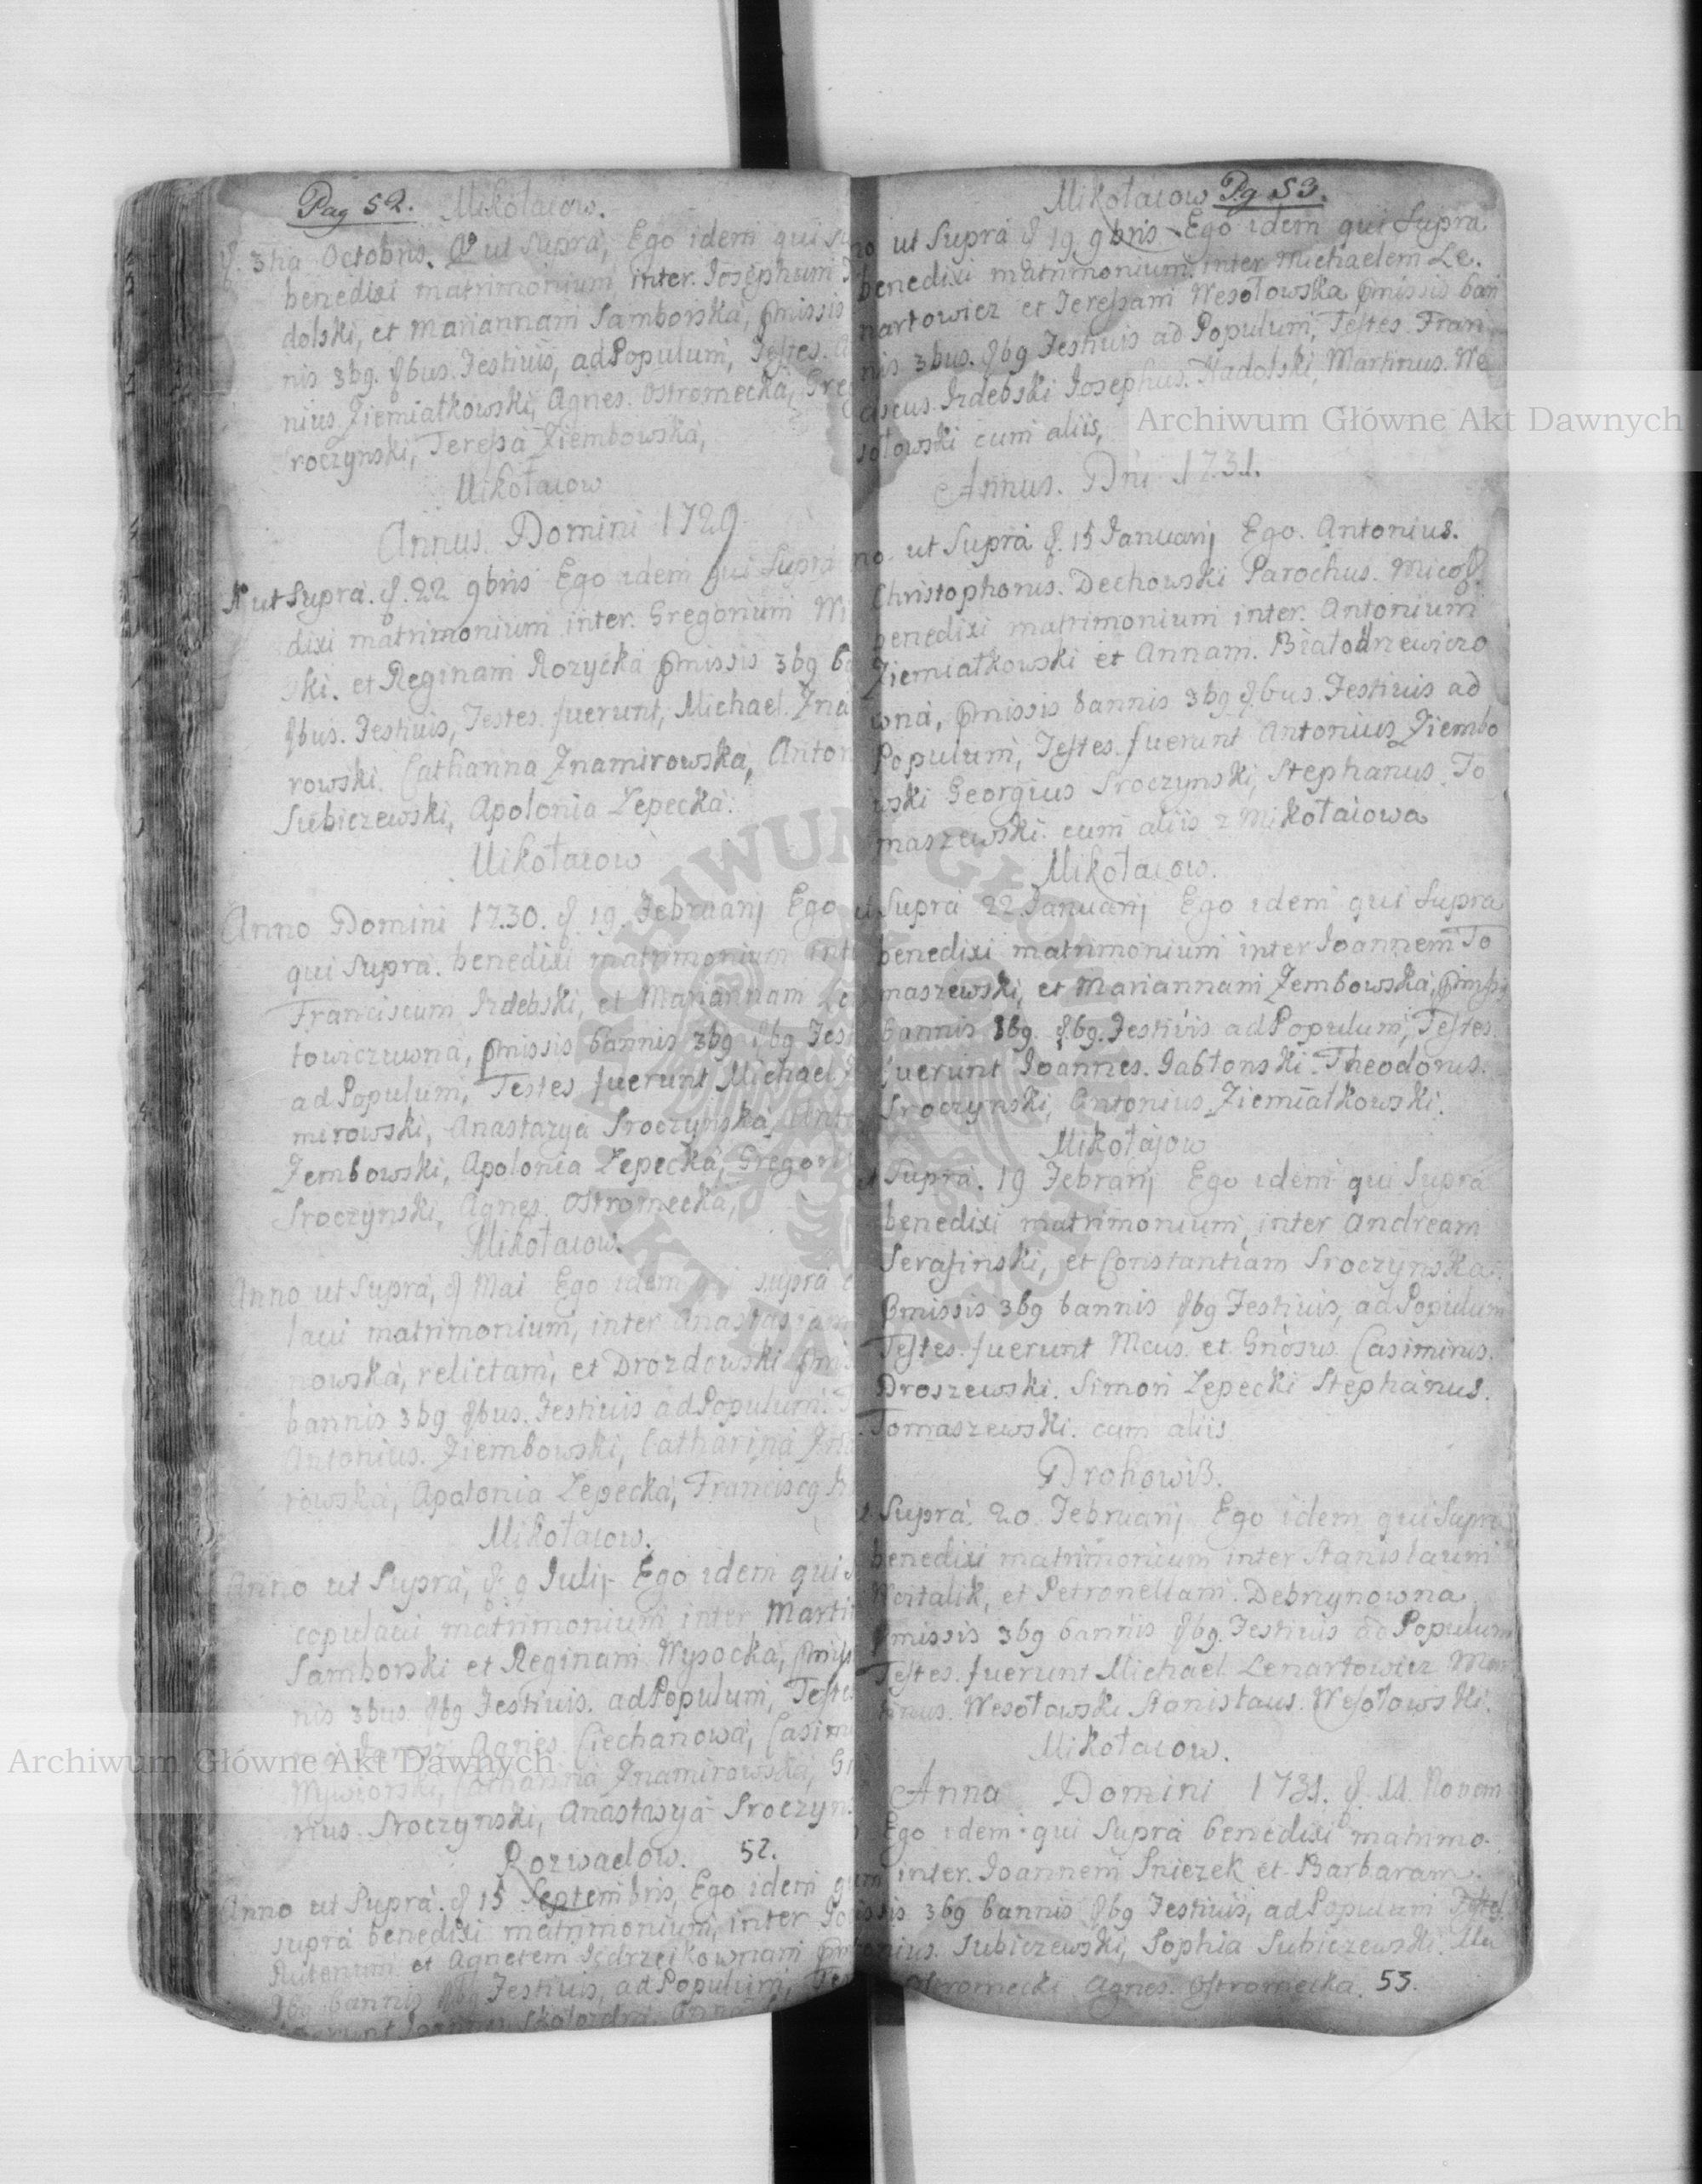 Pag 52. Mikołaiow.
d. 3tia Octobris. A ut Supra, Ego idem qui su
benedixi matrimonium inter. Josephum
dolski, et Mariannam Samborska, pmissis
nis 3bq. dbus. Festiuis, ad Populum, Testes. A
nius Ziemiałkowski, Agnes. Ostromecka, Gre
roczynski, Teressa Ziembowska,
Mikołaiow
Annus. Domini 1729
A ut Supra. d. 22 9bris Ego idem qui Supra
dixi matrimonium inter. Gregorium Wi
ski. et Reginam Rozycka pmissis 3bq ba
dbus. Festiuis, Testes. fuerunt, Michael. Zna
rowski. Catharina Znamirowska, Anton
Subiczewski, Apolonia Lepecka.
Mikołaiow
Anno Domini 1730. d. 19. Februarij Ego
qui Supra. benedixi matrimonium int
Franciscum Izdebski, et Mariannam Le
towiczuwna, pmissis bannis 3bq dbq Fest
ad Populum, Testes fuerunt Michael.
mirowski, Anastazya Sroczynska, Anto
Zembowski, Apolonia Lepecka, Gregori
Sroczynski, Agnes. Ostromecka,
Mikołaiow.
Anno ut Supra, d Mai Ego idem qui supra
laui matrimonium, inter Anastasiam
nowska, relictam, et Drozdowski pmis
bannis 3bq dbus. Festiuis ad Populum. T
Antonius. Ziembowski, Catharina Zna
rowska, Apolonia Lepecka, Franciscq
Mikołaiow.
Anno ut Supra, d 9 Julij Ego idem qui s
copulaui matrimonium inter Marti
Samborski et Reginam Wysocka, pmiss
nis 3bus dbq Festiuis. ad Populum, Testes
Agnes Ciechanowa, Casim
Catharina Znamirowska, Gr
rius. Sroczynski, Anastasya Sroczyn
Rozwadow. 52.
Anno ut Supra. d 15 Septembris, Ego idem q
supra benedixi matrimonium, inter Jo
Rutenum et Agnetem pm
3bq bannis dbq Festiuis, ad Populum, Tes
Mikołaiow Pg 53.
no ut Supra d 19 9bris Ego idem qui Supra
benedixi matrimonium. inter Michaelem Le.
nartowicz et Teressam Wesołowska pmissis ban
nis 3bus. dbq Festiuis ad Populum, Testes. Fran
ciscus. Izdebski Josephus. Nadolski, Martinus. We
sołowski cum aliis,
Annus. Dni 1731.
no. ut Supra d. 15 Januarij Ego. Antonius.
Christophorus. Dechowski Parochus. Micol
benedixi matrimonium inter. Antonium
Ziemiałkowski et Annam. Białobrzewiczo
wna, pmissis bannis 3bq dbus. Festiuis ad
Populum, Testes. fuerunt Antonius Ziembo
wski Georgius Sroczynski, Stephanus. To
maszewski. cum aliis z Mikołaiowa
Mikołaiow.
ut Supra 22 Januarij Ego idem qui Supra
benedixi matrimonium inter Joannem To
maszewski, et Mariannam Zembowska, pmissis
bannis 3bq. dbq. Festiuis ad Populum, Testes.
fuerunt Joannes. Jabłonski. Theodorus.
Sroczynski, Antonius Ziemiałkowski.
Mikołajow
ut Supra. 19 Febrarij Ego idem qui Supra
benedixi matrimonium, inter Andream
Serafinski, et Constantiam Sroczynska.
pmissis 3bq bannis dbq Festiuis, ad Populum
Testes. fuerunt Mcus. et Gnosus. Casimirus.
Droszewski. Simon Lepecki Stephanus.
Tomaszewski. cum aliis
Drohowiß.
ut Supra. 20 Februarij Ego idem qui Supra
benedixi matrimonium inter Stanislaum
Woitalik, et Petronellam. Debrzynowna
pmissis 3bq bannis dbq. Festiuis ad Populum
Testes. fuerunt Michael Lenartowicz Mar
tinus. Wesołowski Stanislaus. Wesołowski.
Mikołaiow.
Anno Domini 1731. d. 11. Novem
Ego idem qui Supra benedixi matrimo.
um inter. Joannem Sniezek et Barbaram.
issis 3bq bannis dbq Festiuis, ad Populum Testes.
onius. Subiczewski, Sophia Subiczewski. Ma
Ostromecki Agnes. Ostromecka. 53.
Archiwum Główne Akt Dawnych
Archiwum Główne Akt Dawnych
ARCHIWUM GŁÓWNE AKT DAWNYCH